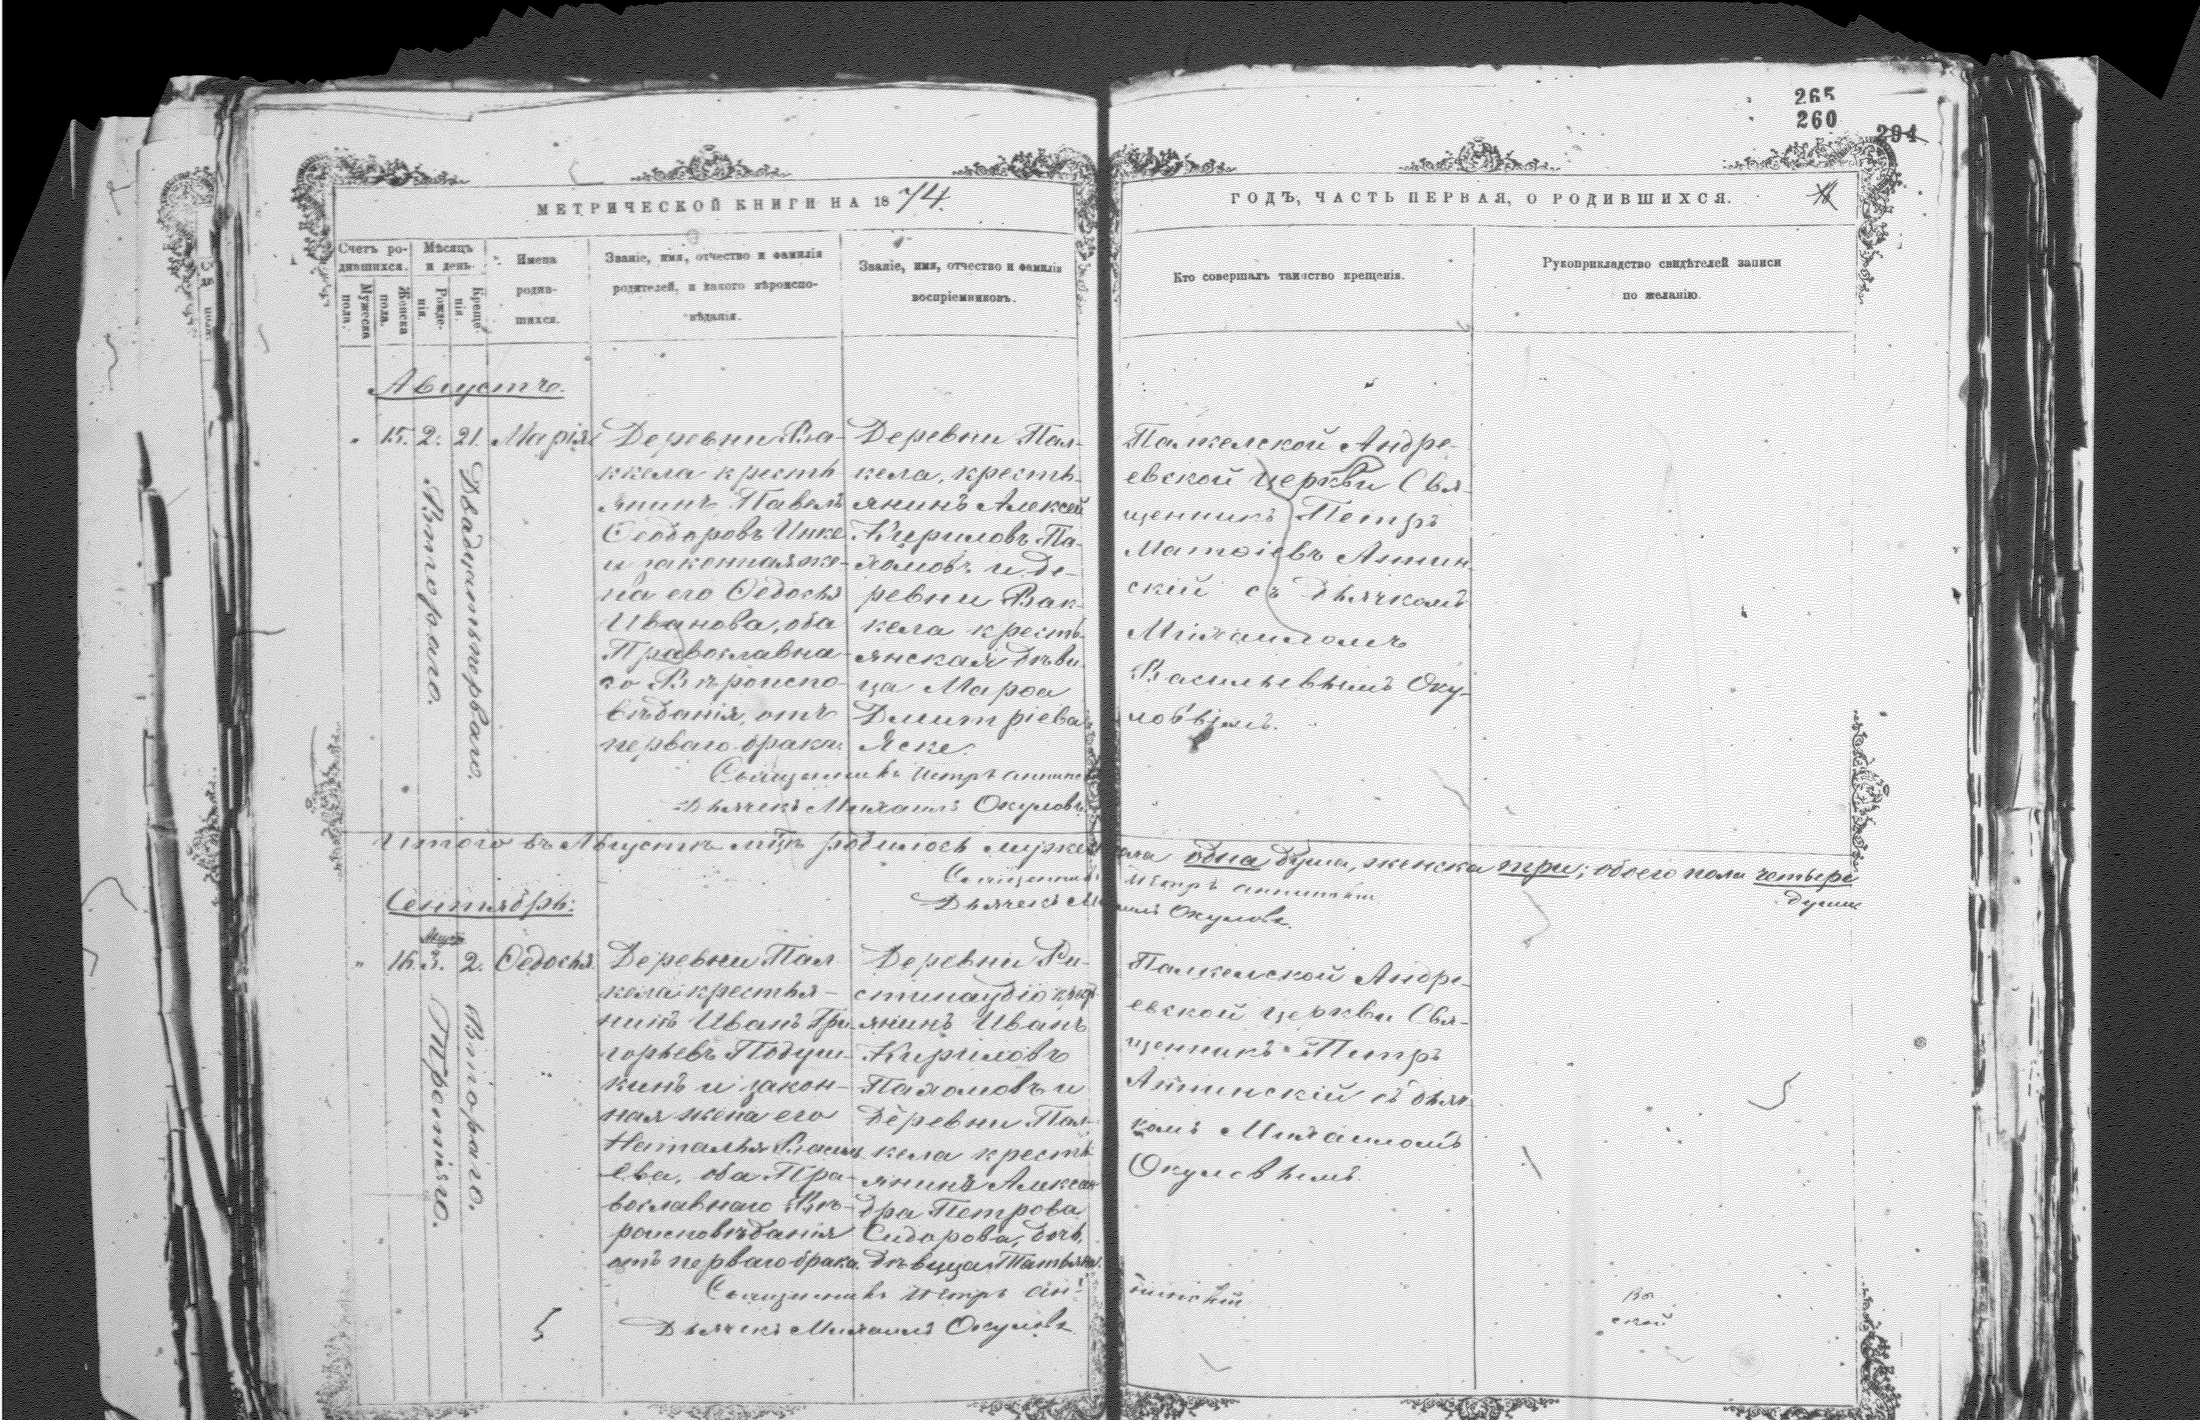 265
260
294
МЕТРИЧЕСКОЙ КНИГИ НА 1874.
ГОДЪ, ЧАСТЬ ПЕРВАЯ, О РОДИВШИХСЯ.
Счетъ ро-
дившихся.
Мужеска
пола.
Женска
пола.
Мѣсяцъ
и день.
Рожде-
нія.
Креще-
нія.
Имена
родив-
шихся.
Званіе, имя, отчество и фамилія
родителей, и какого вѣроиспо-
вѣданія.
Званіе, имя, отчество и фамилія
воспріемниковъ.
Кто совершалъ таинство крещенія.
Рукоприкладство свидѣтелей записи
по желанію.
Августъ.
" 15. 2. 21. Марія
Втораго.
Двадцатьперваго.
Деревни Ва-
ккела кресть
янинъ Павелъ
Ѳеодоровъ Инке
и законная же-
на его Ѳедосья
Иванова, оба
Православна-
го Вѣроиспо-
вѣданія, отъ
перваго брака.
Деревни Пал-
кела, кресть-
янинъ Алексей
Кириловъ Па-
хомовъ и де-
ревни Вак-
кела кресть-
янская дѣви-
ца Марѳа
Дмитріева
Яске.
Палкелской Андре-
евской церкви Свя-
щенникъ Петръ
Матѳіевъ Аннин-
скій съ дьячкомъ
Михаиломъ
Васильевымъ Оку-
ловымъ.
Священникъ Петръ Аннинск
Дьячекъ Михаилъ Окуловъ.
Итого въ Августѣ мцѣ родилось мужеска пола одна душа, женска три; обоего пола четыре
души
Священникъ Петръ Аннинскій
Дьячекъ Михаилъ Окуловъ.
Сентябрь:
Августа
" 16. 3. 2. Ѳедосья
Третіяго.
Втораго.
Деревни Пал
кела крестья-
нинъ Иванъ Гри-
горьевъ Подуш-
кинъ и закон-
ная жена его
Наталья Василь
ева, оба Пра-
вославнаго Вѣ-
роисповѣданія
отъ перваго брака.
Деревни Ри-
янинъ Иванъ
Кириловъ
Пахомовъ и
Деревни Пал-
кела кресть
янина Алексан
дра Петрова
Сидорова, дочь,
дѣвица Татьяна.
Палкелской Андре-
евской церкви Свя-
щенникъ Петръ
Аннинскій съ дьяч
комъ Михаиломъ
Окуловымъ.
Священникъ Петръ Аннинскій
Дьячекъ Михаилъ Окуловъ